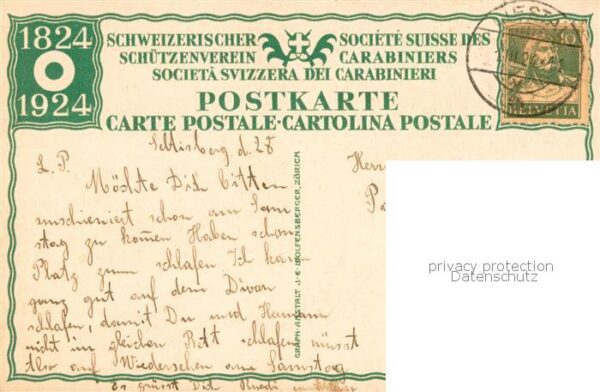 1824
1924
SCHWEIZERISCHER
SCHÜTZENVEREIN
SOCIÉTÉ SUISSE DES
CARABINIERS
SOCIETÀ SVIZZERA DEI CARABINIERI
POSTKARTE
CARTE POSTALE-CARTOLINA POSTALE
10
HELVETIA
d. 28
L. P.
Möchte Dich bitten
schon am Sam
stag zu kom̄en Haben schon
Platz zum schlafen Ich kan
ganz gut auf dem Divan
schlafen, damit Du und Hermann
nicht im gleichen Bett schlafen müsst
Also auf Wiedersehen am Samstag
Es grüsst Dich Ruedi
GRAPH. ANSTALT J. E. WOLFENSBERGER, ZÜRICH
Herrn
privacy protection
Datenschutz